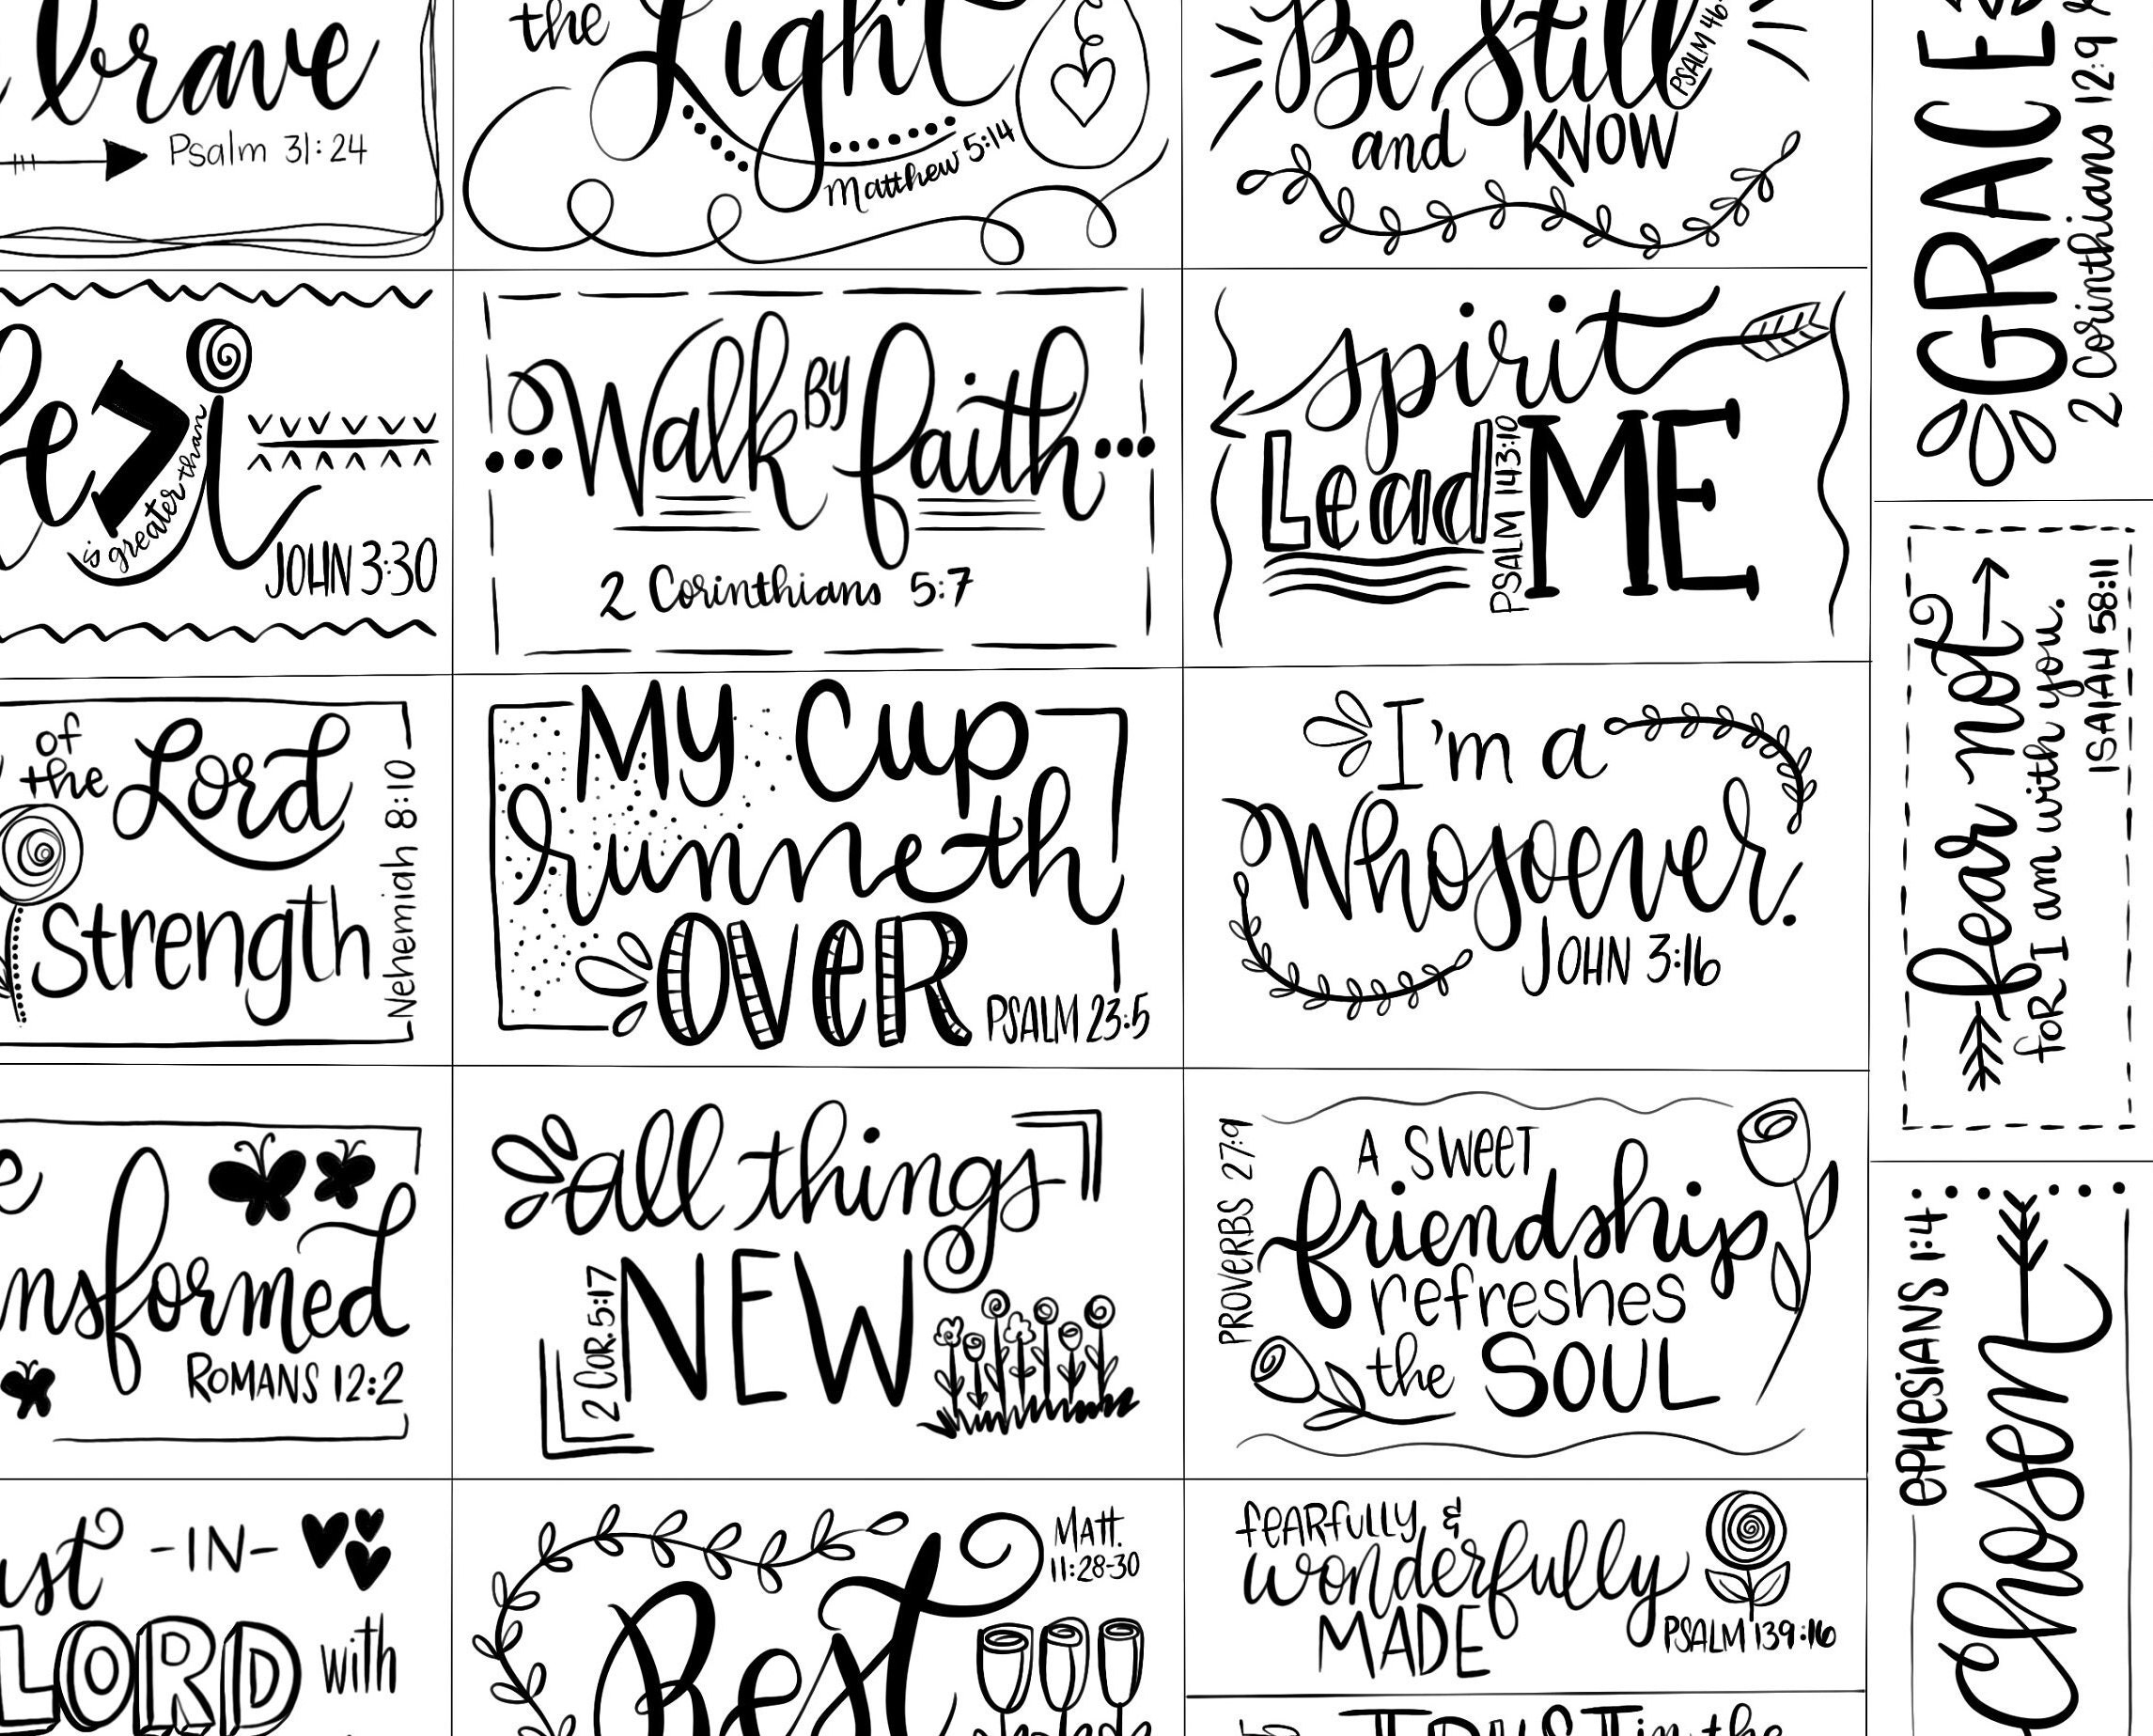 brave
Psalm 31:24
the
Light
Matthew 5:14
Be Still
PSALM 46:
and KNOW
is greater than
JOHN 3:30
Walk BY faith
2 Corinthians 5:7
spirit
Lead ME
PSALM 143:10
of
the Lord
Strength
Nehemiah 8:10
My Cup
Runneth
OVER
PSALM 23:5
I'm a
Whosoever.
JOHN 3:16
nsformed
ROMANS 12:2
all things
NEW
2 COR. 5:17
PROVERBS 27:9
A SWEET
friendship
refreshes
the SOUL
ust -IN-
LORD with
Matt.
11:28-30
Rest
feARfully &
wonderfully
MADE
PSALM 139:16
TRUST in the
GRACE
2 Corinthians 12:9
fear not
foR I am with you.
ISAIAH 58:11
ePHeSIANS 1:4
Chosen